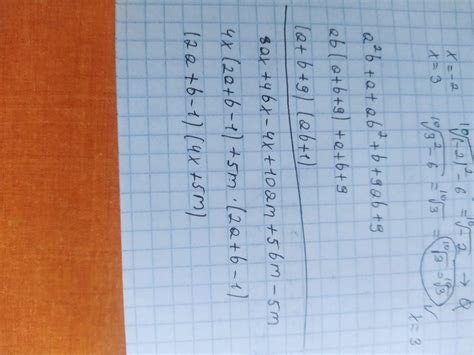 x = -2 ¹⁰√(-2)²-6 = ¹⁰√-2 →
x = 3 ¹⁰√3²-6 = ¹⁰√3 = ¹⁰√3 = ¹⁰√3
x = 3
a²b+a+ab²+b+9ab+9
ab(a+b+9)+a+b+9
(a+b+9)(ab+1)
8ax+4bx-4x+10am+5bm-5m
4x(2a+b-1)+5m·(2a+b-1)
(2a+b-1)(4x+5m)